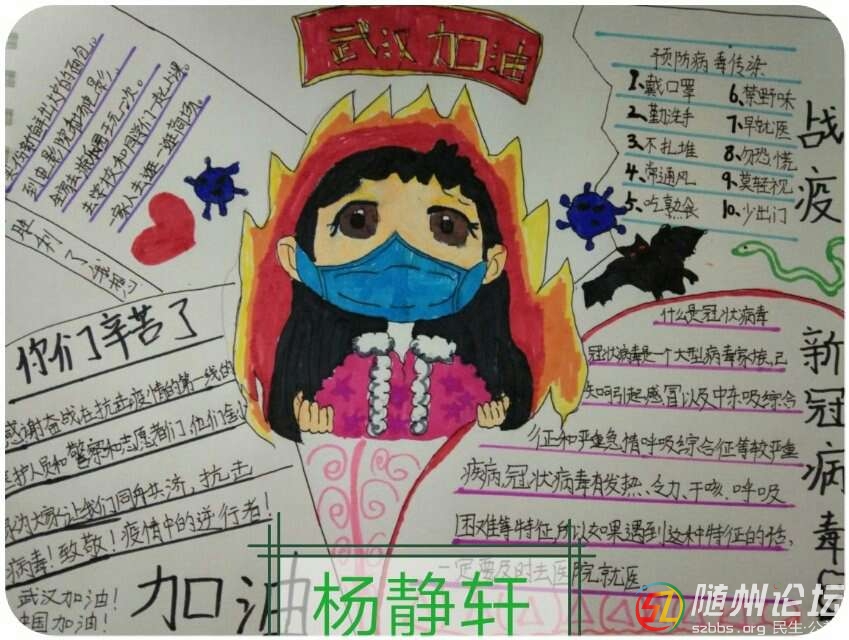 武汉加油
到电影院看场电影。
全家去游乐园玩一次。
去学校和同学们一起上课。
一家人去逛一逛商场。
胜利了我想
预防病毒传染
1、戴口罩
2、勤洗手
3、不扎堆
4、常通风
5、吃熟食
6、禁野味
7、早就医
8、勿恐慌
9、莫轻视
10、少出门
战疫
你们辛苦了
感谢奋战在抗击疫情的第一线的
医护人员和警察和志愿者们，他们舍小
家为大家！让我们同舟共济，抗击
病毒！致敬！疫情中的逆行者！
武汉加油！
中国加油！
加油
什么是冠状病毒
冠状病毒是一个大型病毒家族，已
知可引起感冒以及中东呼吸综合
征和严重急性呼吸综合征等较严重
疾病，冠状病毒有发热、乏力、干咳、呼吸
困难等特征，所以如果遇到这种特征的话，
一定要及时去医院就医
新冠病毒
杨静轩
随州论坛
szbbs.org 民生·公